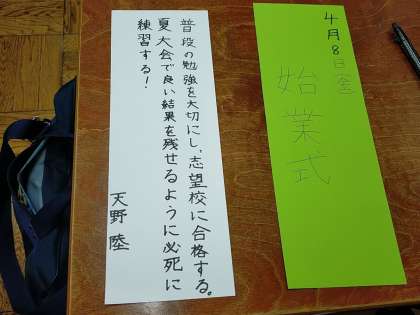 4月8日(金)
始業式
普段の勉強を大切にし、志望校に合格する。
夏大会で良い結果を残せるように必死に
練習する!
天野 陸